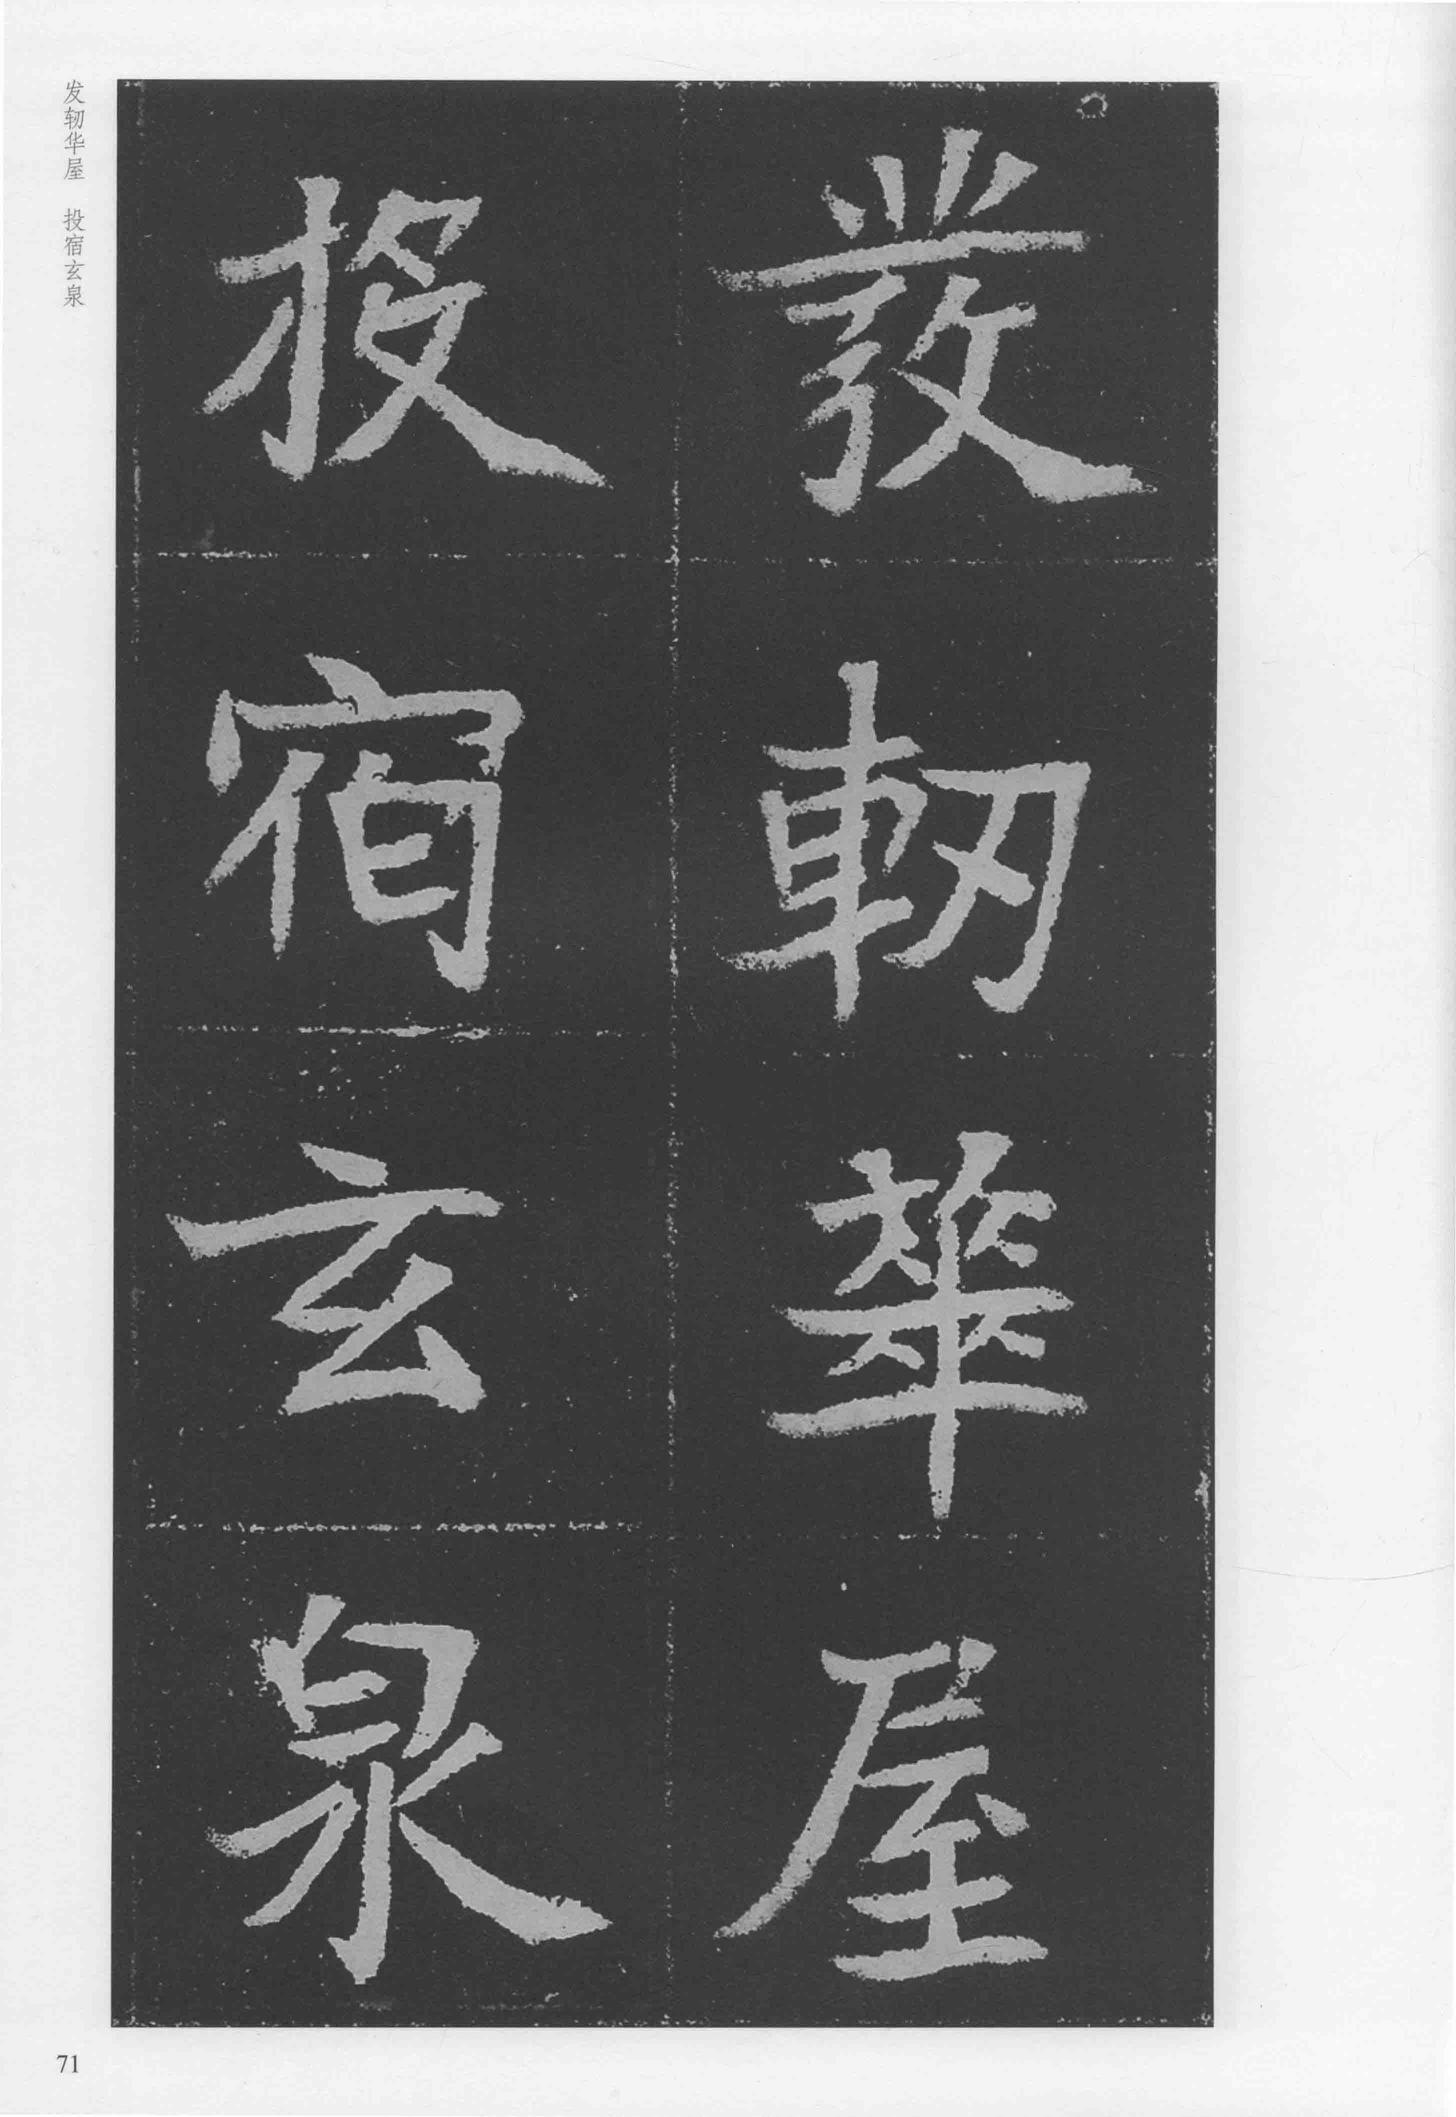 發軔華屋
投宿玄泉
发轫华屋 投宿玄泉
71